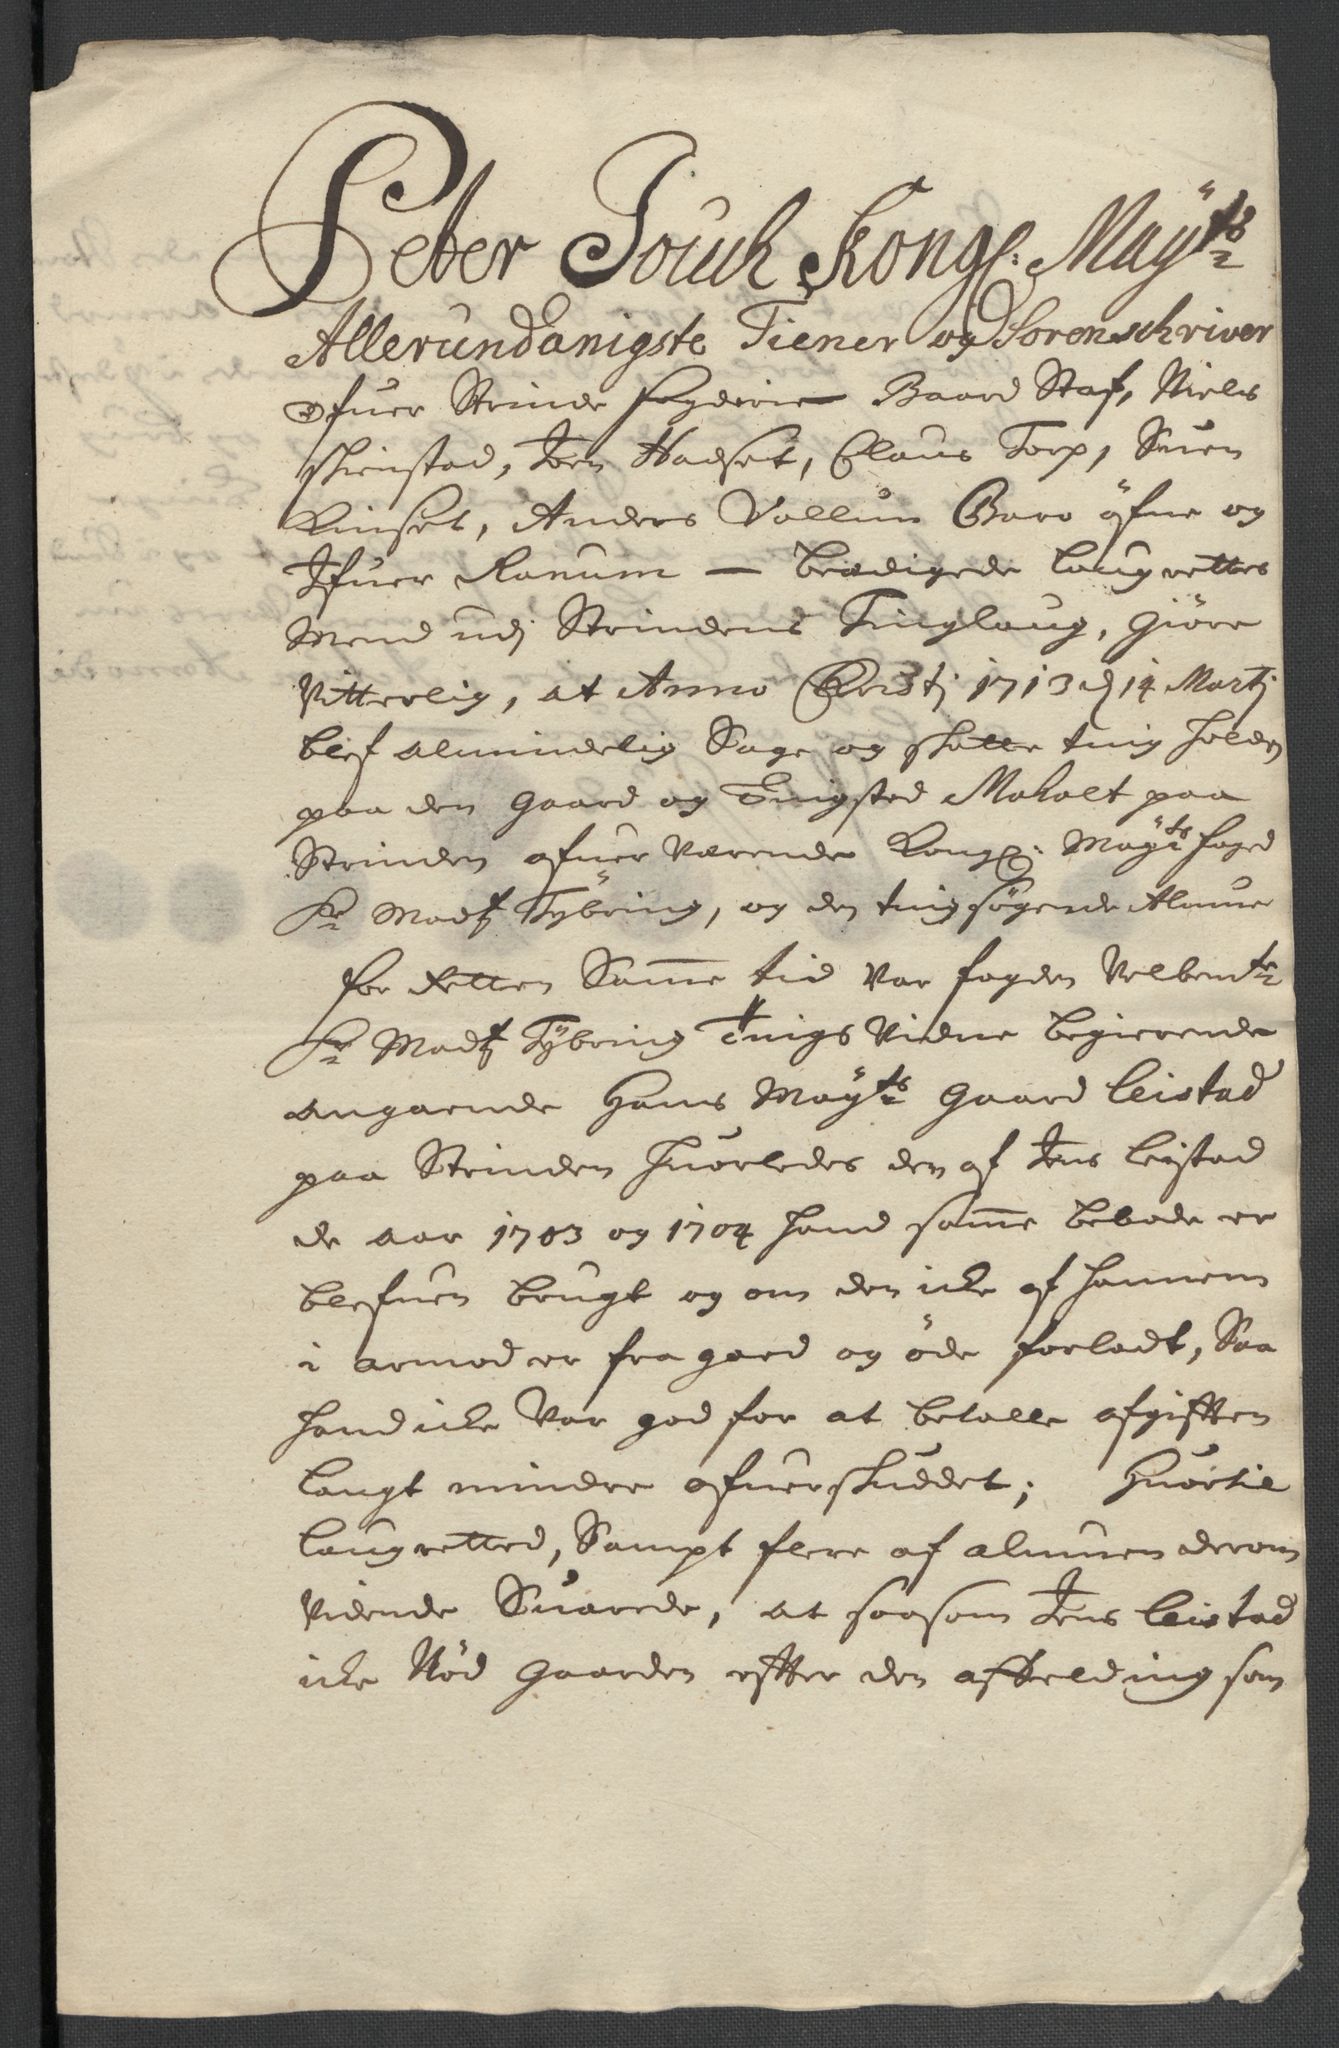 Peter Touch Kongl: Maÿts
Allerundanigste Tiener og Sorenschriver
Ofuer Strinde fogderie Baard Staf, Niels
skienstad, Joen Hadset, Claus Torp, Suen
Rinset, Anders Vollum Baro öfne og
Ifuer Ranum — Beædigede Laugrettes
Mend udj Strindens Tinglaug, Giöre
Vitterlig, at Anno Christj 1713 d 14 Martj
blef almindelig Sage og skatte ting holden
paa den gaard og Tingsted Moholt paa
Strinden ofuer Værende Kongl: Mayts foged
Sr Madtz Tÿbring, og den ting søgende Almue
for Retten Samme tid Var fogden Velbemte
Sr Madtz Tÿbring Tings Vidne begierende
angaaende Hans Maÿts Gaard Leistad
paa Strinden huorledes den af Jens Leistad
de aar 1703 og 1704 hand samme beboede er
blefuen brugt og om den icke af hannem
i armod er fragaaed og øde forladt, Saa
hand icke Var god for at betalle afgifften
langt mindre ofuerskuddet; Huortil
laugretted, Sampt flere af almuen derom
Vidende Suarede, at saasom Jens Leistad
icke Nød gaarden effter den affelding som